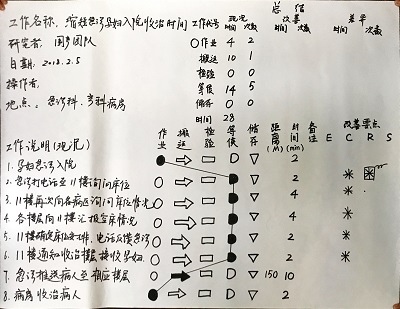 总结
工作名称: 缩短急诊孕妇入院收治时间 工作代号 现况 改善 差异
时间 次数 时间 次数 时间 次数
研究者: 圈 团队 ○作业 4 2
日期: 2018.2.5 搬运 10 1
检验 0 0
操作者: 等候 14 5
地点: 急诊科, 产科病房 储存 0 0
时间 28
工作说明(现况) 作业 搬运 检验 等候 储存 距离(M) 时间(min) 备注 改善要点
E C R S
1. 孕妇急诊入院 ○ ⇨ □ D ▽ 2
2. 急诊打电话至11楼询问床位 ○ ⇨ □ D ▽ 2 * *
3. 11楼再次向各病区询问床位情况 ○ ⇨ □ D ▽ 4 *
4. 各楼层向11楼汇报空床情况 ○ ⇨ □ D ▽ 4 *
5. 11楼确定床位安排, 电话反馈急诊 ○ ⇨ □ D ▽ 2 *
6. 11楼通知收治楼层接收孕妇 ○ ⇨ □ D ▽ 2 *
7. 急诊推送病人至相应楼层 ○ ➡ □ D ▽ 150 10
8. 病房收治病人 ● ⇨ □ D ▽ 2